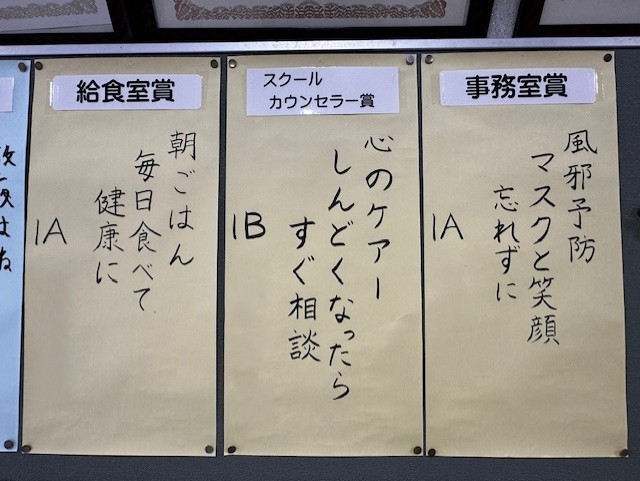 事務室賞
風邪予防
マスクと笑顔
忘れずに
1A
スクール
カウンセラー賞
心のケアー
しんどくなったら
すぐ相談
1B
給食室賞
朝ごはん
毎日食べて
健康に
1A